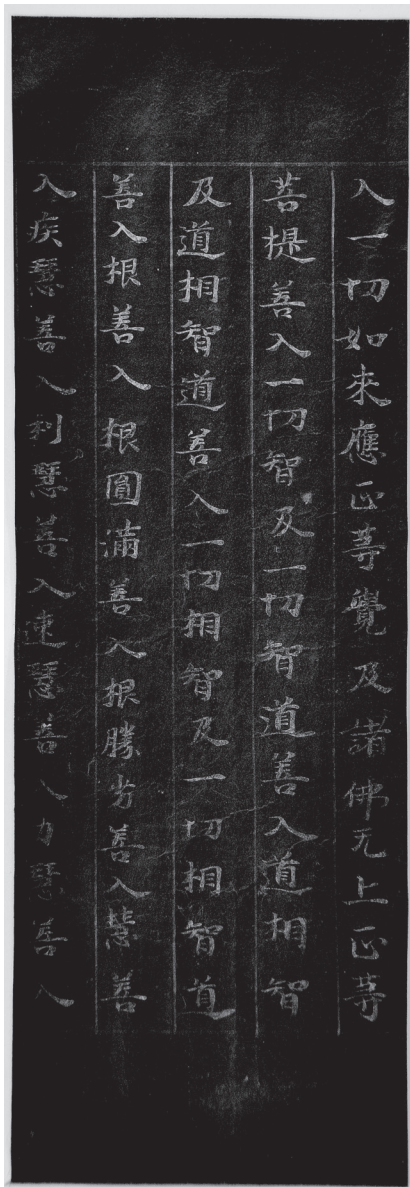 入一切如来應正等覺及諸佛无上正等
菩提善入一切智及一切智道善入道相智
及道相智道善入一切相智及一切相智道
善入根善入根圓滿善入根勝劣善入慧善
入疾慧善入利慧善入速慧善入力慧善入